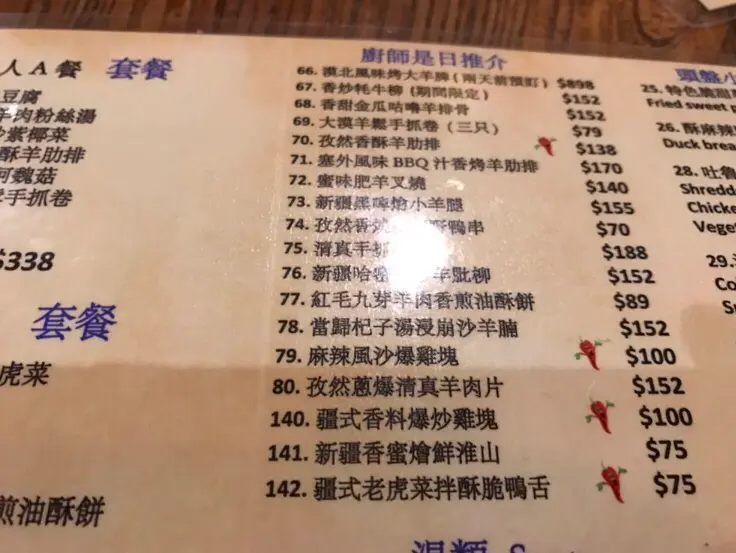 人 A 餐 套餐
豆腐
羊肉粉絲湯
紫椰菜
酥羊肋排
手抓卷
$338
套餐
虎菜
煎油酥餅
廚師是日推介
66. 漠北風味烤大羊脾 ( 兩天前預訂 ) $898
67. 香炒牦牛柳 ( 期間限定 ) $152
68. 香甜金瓜咕嚕羊排骨 $152
69. 大漠羊鬆手抓卷 ( 三只 ) $79
70. 孜然香酥羊肋排 $138
71. 塞外風味 BBQ 汁香烤羊肋排 $170
72. 蜜味肥羊叉燒 $140
73. 新疆黑啤燴小羊腿 $155
74. 孜然香 鴨串 $70
75. 清真手抓 $188
76. 新疆哈密 羊肶柳 $152
77. 紅毛九芽羊肉香煎油酥餅 $89
78. 當歸杞子湯浸崩沙羊腩 $152
79. 麻辣風沙爆雞塊 $100
80. 孜然蔥爆清真羊肉片 $152
140. 疆式香料爆炒雞塊 $100
141. 新疆香蜜燴鮮淮山 $75
142. 疆式老虎菜拌酥脆鴨舌 $75
頭盤小
25. 特色脆甜
Fried sweet p
26. 酥麻辣
Duck brea
28. 吐魯
Shredd
Chicke
Veget
29.
Co